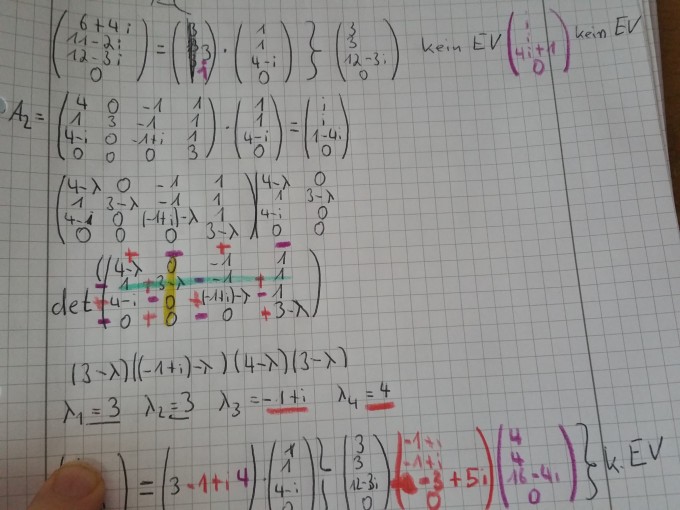 (6+4i 11-2i 12-3i 0) = (3 1) · (1 1 4-i 0) } (3 3 12-3i 0) kein EV (i i 4i+1 0) kein EV
A₂ = (4 0 -1 1
1 3 -1 1
4-i 0 -1+i 1
0 0 0 3) · (1 1 4-i 0) = (i i 1-4i 0)
(4-λ 0 -1 1 | 4-λ 0
1 3-λ -1 1 | 1 3-λ
4-i 0 (-1+i)-λ 1 | 4-i 0
0 0 0 3-λ) | 0 0
det ((4-λ 0 -1 1
1 3-λ -1 1
4-i 0 (-1+i)-λ 1
0 0 0 3-λ)
(3-λ)((-1+i)-λ)(4-λ)(3-λ)
λ₁ = 3 λ₂ = 3 λ₃ = -1+i λ₄ = 4
= (3 -1+i 4) · (1 1 4-i 0) { (3 3 12-3i 0) (-1+i -1+i -3+5i 0) (4 4 16-4i 0) } k. EV